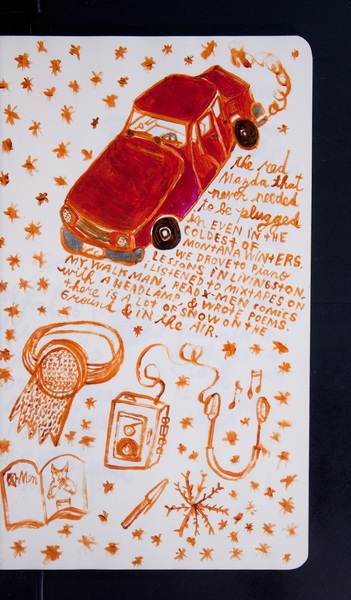 the red
Mazda that
never needed
to be plugged
in, EVEN IN THE
COLDEST OF
MONTANA WINTERS.
WE DROVE to piano
LESSONS IN LIVINGSTON,
I LISTENED TO MIXTAPES ON
MY WALKMAN, READ X-MEN COMICS
with A HEADLAMP, & WROTE POEMS.
there IS A LOT OF SNOW ON THE
GROUND & IN the AIR.
X-Men